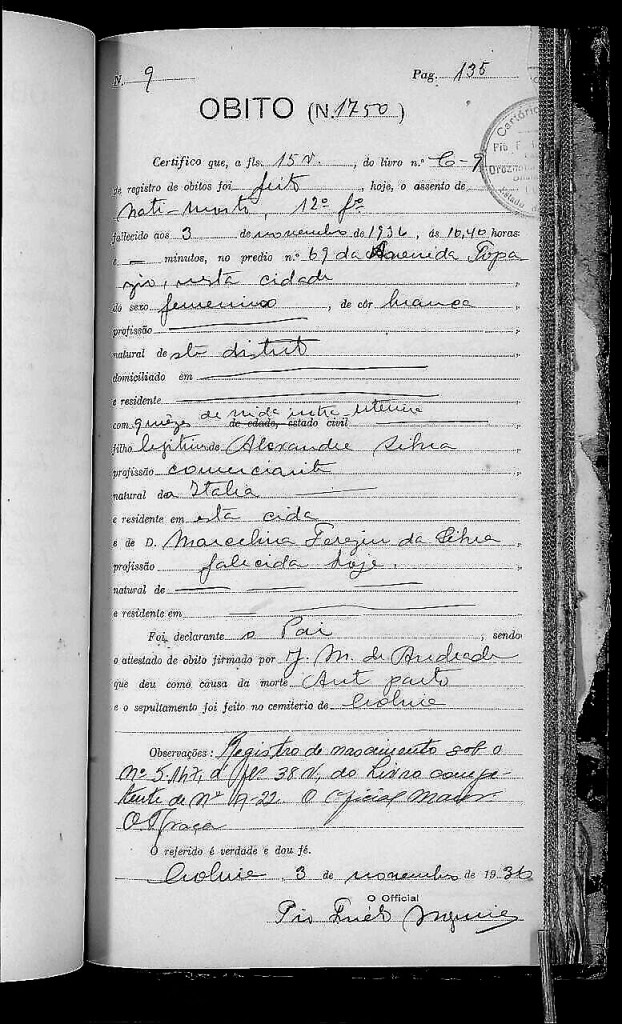 N. 9 Pag. 135
OBITO (N. 1750)
Certifico que, a fls. 15 v., do livro n.º C-9
de registro de obitos foi feito, hoje, o assento de
nati-morto, 12º fº
fallecido aos 3 de novembro de 1936, ás 16,40 horas
e — minutos, no predio n.º 69 da Avenida Topa
zio, nesta cidade
do sexo femenino, de côr branca,
profissão
natural de ste districto
domiciliado em
e residente
com de vida intra-uterina de edade, estado civil
filho legitimo de Alexandre Silva
profissão comerciante
natural da Italia
e residente em esta cida
e de D. Marcelina da Silva,
profissão falecida hoje.
natural de
e residente em
Foi declarante o Pai, sendo
o attestado de obito firmado por J. M. de Andrade
que deu como causa da morte Ant parto
e o sepultamento foi feito no cemiterio de
Observações: Registro de nascimento sob o
nº 5.147, á fls 38 V, do Livro compe-
tente de Nº A-22. O Oficial Maior
O referido é verdade e dou fé.
3 de novembro de 1936
O Official
Cartório